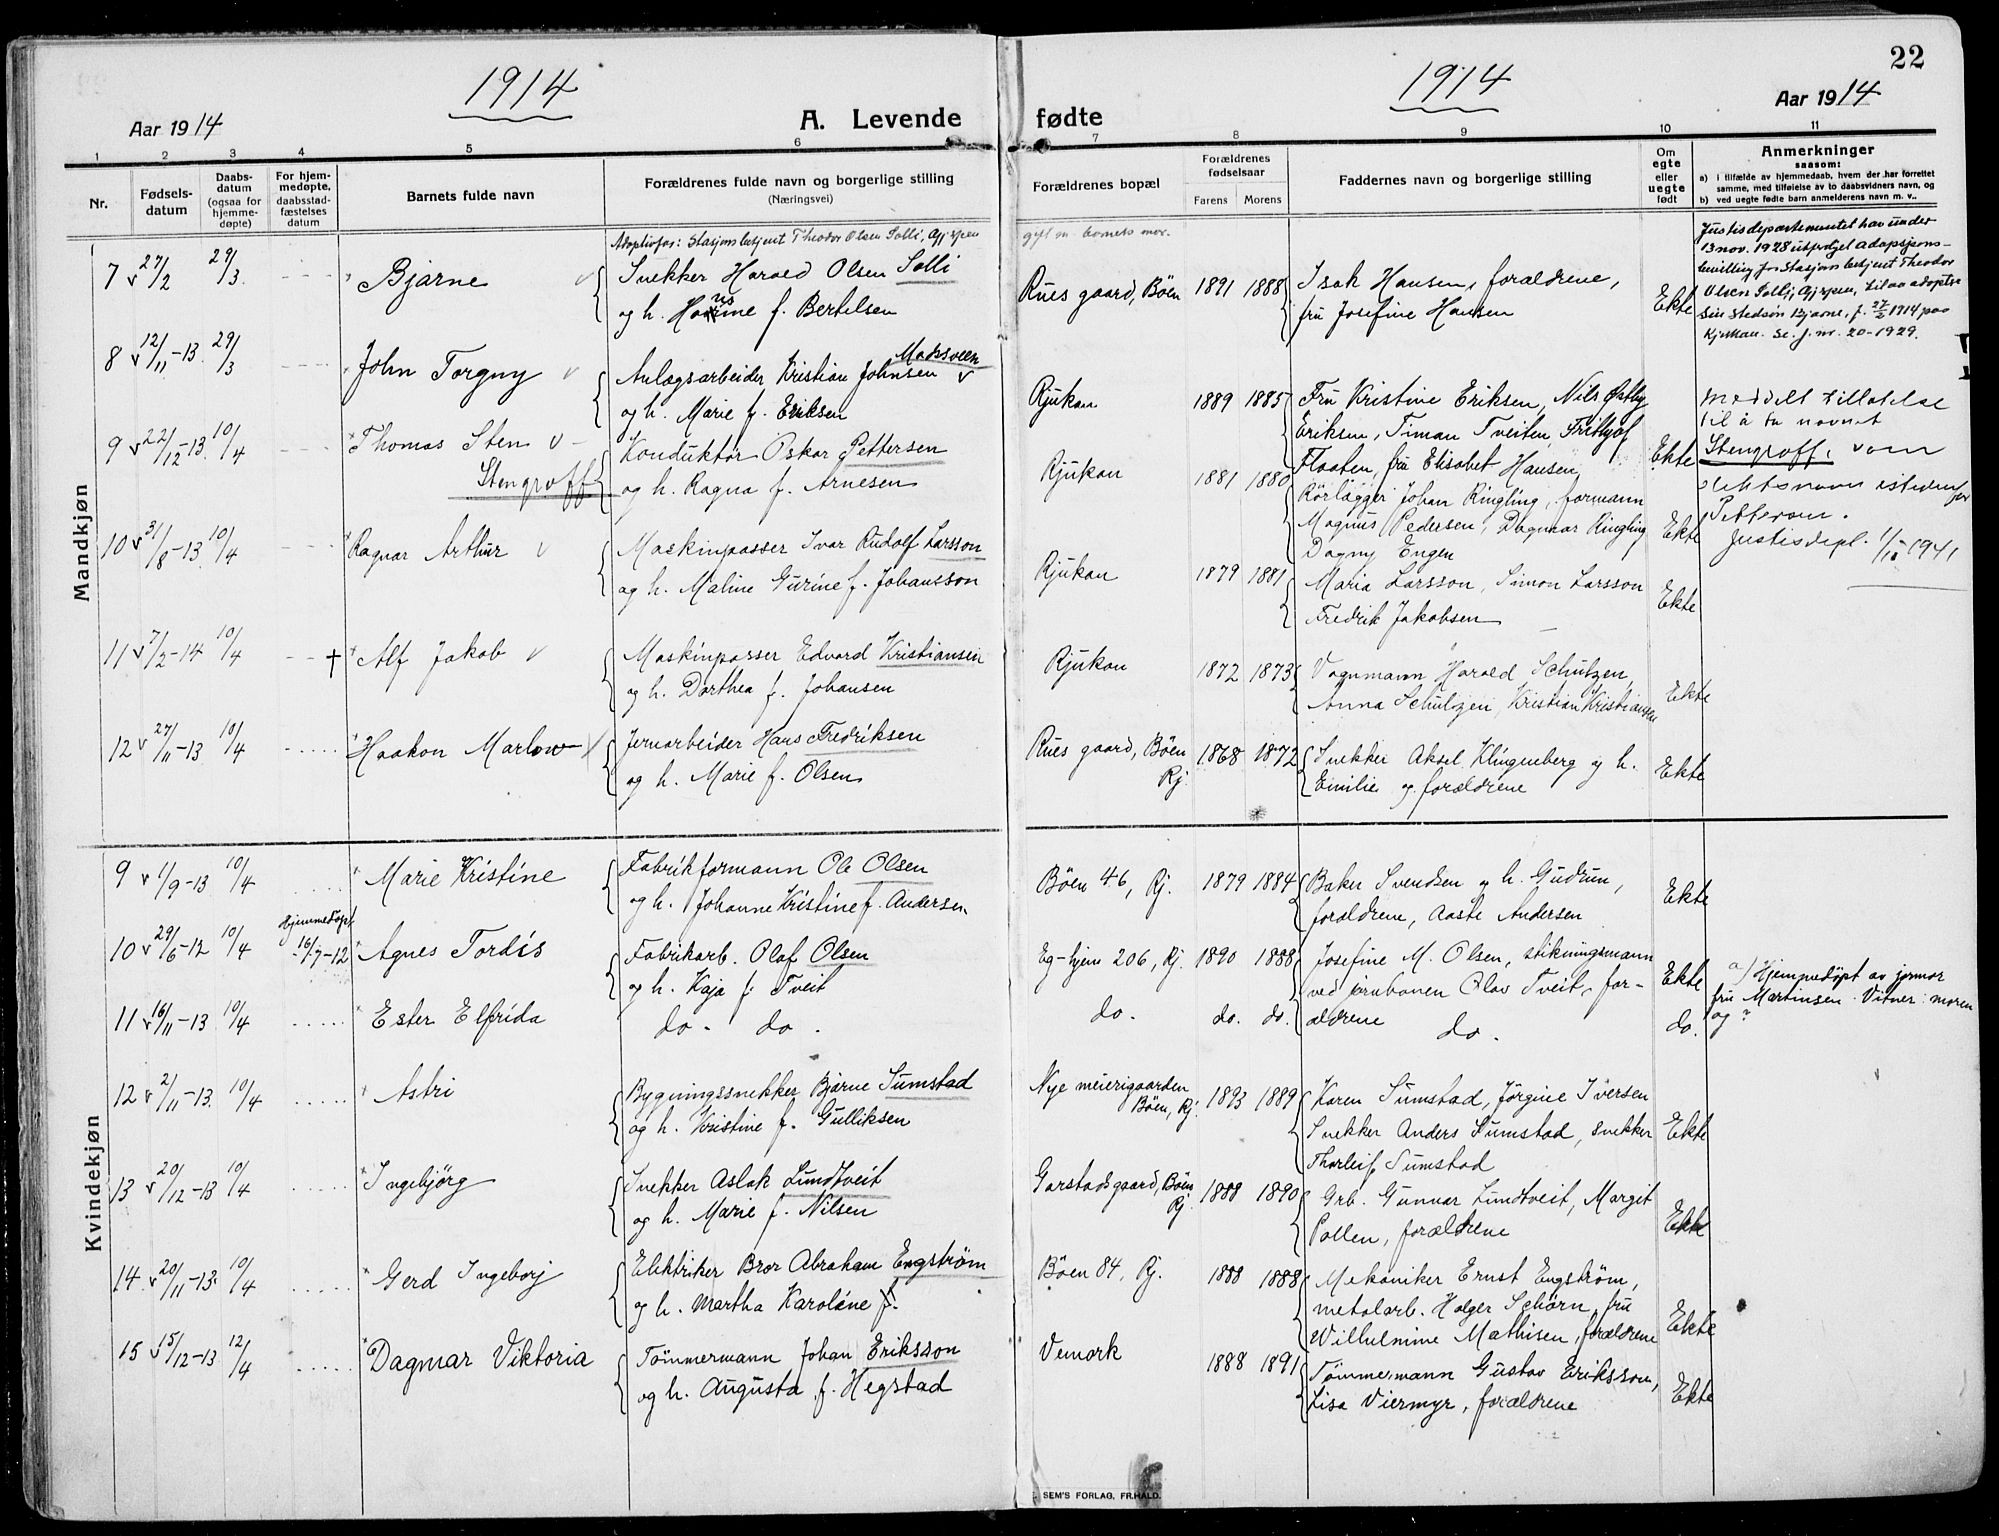 22
1914
1914
Aar 1914
A. Levende
fødte
Aar 1914
1 2 3 4 5 6 7 8 9 10 11
Nr.
Fødsels-
datum
Daabs-
datum
(ogsaa for
hjemme-
døpte)
For hjem-
medøpte,
daabsstad-
fæstelses
datum
Barnets fulde navn
Forældrenes fulde navn og borgerlige stilling
(Næringsvei)
Forældrenes bopæl
Forældrenes
fødselsaar
Farens Morens
Faddernes navn og borgerlige stilling
Om
egte
eller
uegte
født
Anmerkninger
saasom:
a) i tilfælde av hjemmedaab, hvem der har forrettet
samme, med tilføielse av to daabsvidners navn, og
b) ved uegte fødte barn anmelderens navn m. v..
Mandkjøn
Adoptivfar: Stasjonsbetjent Theodor Olsen Solli, Gjerpen
gift m. barnets mor.
7 v 27/2 29/3 Bjarne
Snekker Harald Olsen Solli
og h. Hansine f. Bertelsen
Rues gaard, Böen 1891 1888
Isak Hansen, forældrene,
fru Josefine Hansen
Ekte
Justisdepartementet har under
13 nov. 1928 utferdiget adopsjons-
bevilling for Stasjonsbetjent Theodor
Olsen Solli, Gjerpen, til aa adoptere
sin stedsön Bjarne, f. 27/2 1914 paa
Rjukan. Se j. nr. 20-1929.
8 v 12/11-13 29/3 John Torgny v
Madssveen
Anlægsarbeider Kristian Johnsen v
og h. Marie f. Eriksen
Rjukan 1889 1885
Fru Kristine Eriksen, Nils Østby
Eriksen, Timan Tveiten, Frithjof
Flaaten, fru Elisabet Hansen
Ekte
9 v 22/12-13 10/4 Thomas Sten v -
Stengroff
Konduktör Oskar Pettersen
og h. Ragna f. Arnesen
Rjukan 1881 1880
Rörlægger Johan Ringling, formann
Magnus Pedersen, Dagmar Ringling
Dagny Engen
Ekte
Meddelt tillatelse
til å ta navnet
Stengroff, som
slektsnavn istedenfor
Pettersen.
Justisdept. 1/10-1941
10 v 31/8-13 10/4 Ragnar Arthur v
Maskinpasser Ivar Rudolf Larsson
og h. Maline Gurine f. Johansson
Rjukan 1879 1881
Maria Larsson, Simon Larsson
Fredrik Jakobsen
Ekte
11 v 7/2-14 10/4 † Alf Jakob v
Maskinpasser Edvard Kristiansen
og h. Dorthea f. Johansen
Rjukan 1872 1873
Vognmann Harald Schultzen,
Anna Schultzen, Kristian Kristiansen
Ekte
12 v 27/11-13 10/4 Haakon Marlow v
Jernarbeider Hans Fredriksen
og h. Marie f. Olsen
Rues gaard, Böen
Rj. 1868 1872
Snekker Aksel Klingenberg og h.
Emilie og forældrene
Ekte
Kvindekjøn
9 v 1/9-13 10/4 Marie Kristine
Fabrikformann Ole Olsen
og h. Johanne Kristine f. Andersen
Böen 46, Rj. 1879 1884
Baker Svendsen og h. Gudrun,
forældrene, Aaste Andersen
Ekte
10 v 29/6-12 10/4 Hjemmedöpt
16/7-12 Agnes Tordis
Fabrikarb. Olaf Olsen
og h. Kaja f. Tveit
Eg-hjem 206, Rj. 1890 1888
Josefine M. Olsen, stikningsmann
ved jernbanen Olav Tveit, for-
ældrene
Ekte
a) Hjemmedöpt av jormor
fru Martinsen. Vitner: moren
og ?
11 v 16/11-13 10/4 Ester Elfrida
do. do.
do. do. do. do. do.
12 v 2/11-13 10/4 Astri
Bygningssnekker Bjarne Sumstad
og h. Kristine f. Gulliksen
Nye meierigaarden
Böen, Rj. 1893 1889
Karen Sumstad, Jörgine Iversen
Snekker Anders Sumstad, snekker
Thorleif Sumstad
Ekte
13 v 20/12-13 10/4 Ingebjörg
Snekker Aslak Lundtveit
og h. Marie f. Nilsen
Garstadsgaard, Böen
Rj. 1888 1890
Grb. Gunnar Lundtveit, Margit
Pollen, forældrene
Ekte
14 v 20/11-13 10/4 Gerd Ingeborg
Elektriker Bror Abraham Engström
og h. Martha Karoline f.
Böen 84, Rj. 1888 1888
Mekaniker Ernst Engström,
metalarb. Holger Schörn, fru
Wilhelmine Mathisen, forældrene
Ekte
15 v 15/12-13 12/4 Dagmar Viktoria
Tömmermann Johan Eriksson
og h. Augusta f. Hegstad
Vemork 1888 1891
Tömmermann Gustav Eriksson,
Lisa Viermyr, forældrene
Ekte
SEM'S FORLAG, FR.HALD.